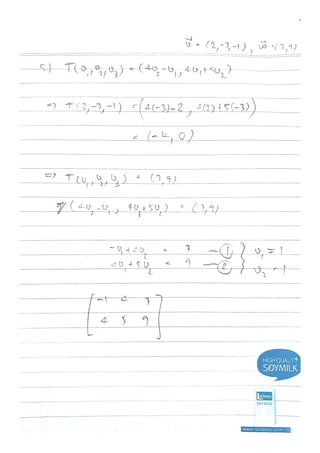 v⃗ = (2,-3,-1), w⃗ = (3,9)
5) T(v₁,v₂,v₃) = (4v₂-v₁, 4v₁+5v₂)
=> T(2,-3,-1) = (4(-3)-2, 4(2)+5(-3))
=> T(v₁,v₂,v₃) = (3,9)
(4v₂-v₁, 4v₁+5v₂) = (3,9)
-v₁+4v₂ = 3 —① } v₁ = 1
4v₁+5v₂ = 9 —② } v₂ = 1
[ -1 4 3
4 5 9 ]
HIGH QUALITY
SOYMILK
SOYMILK